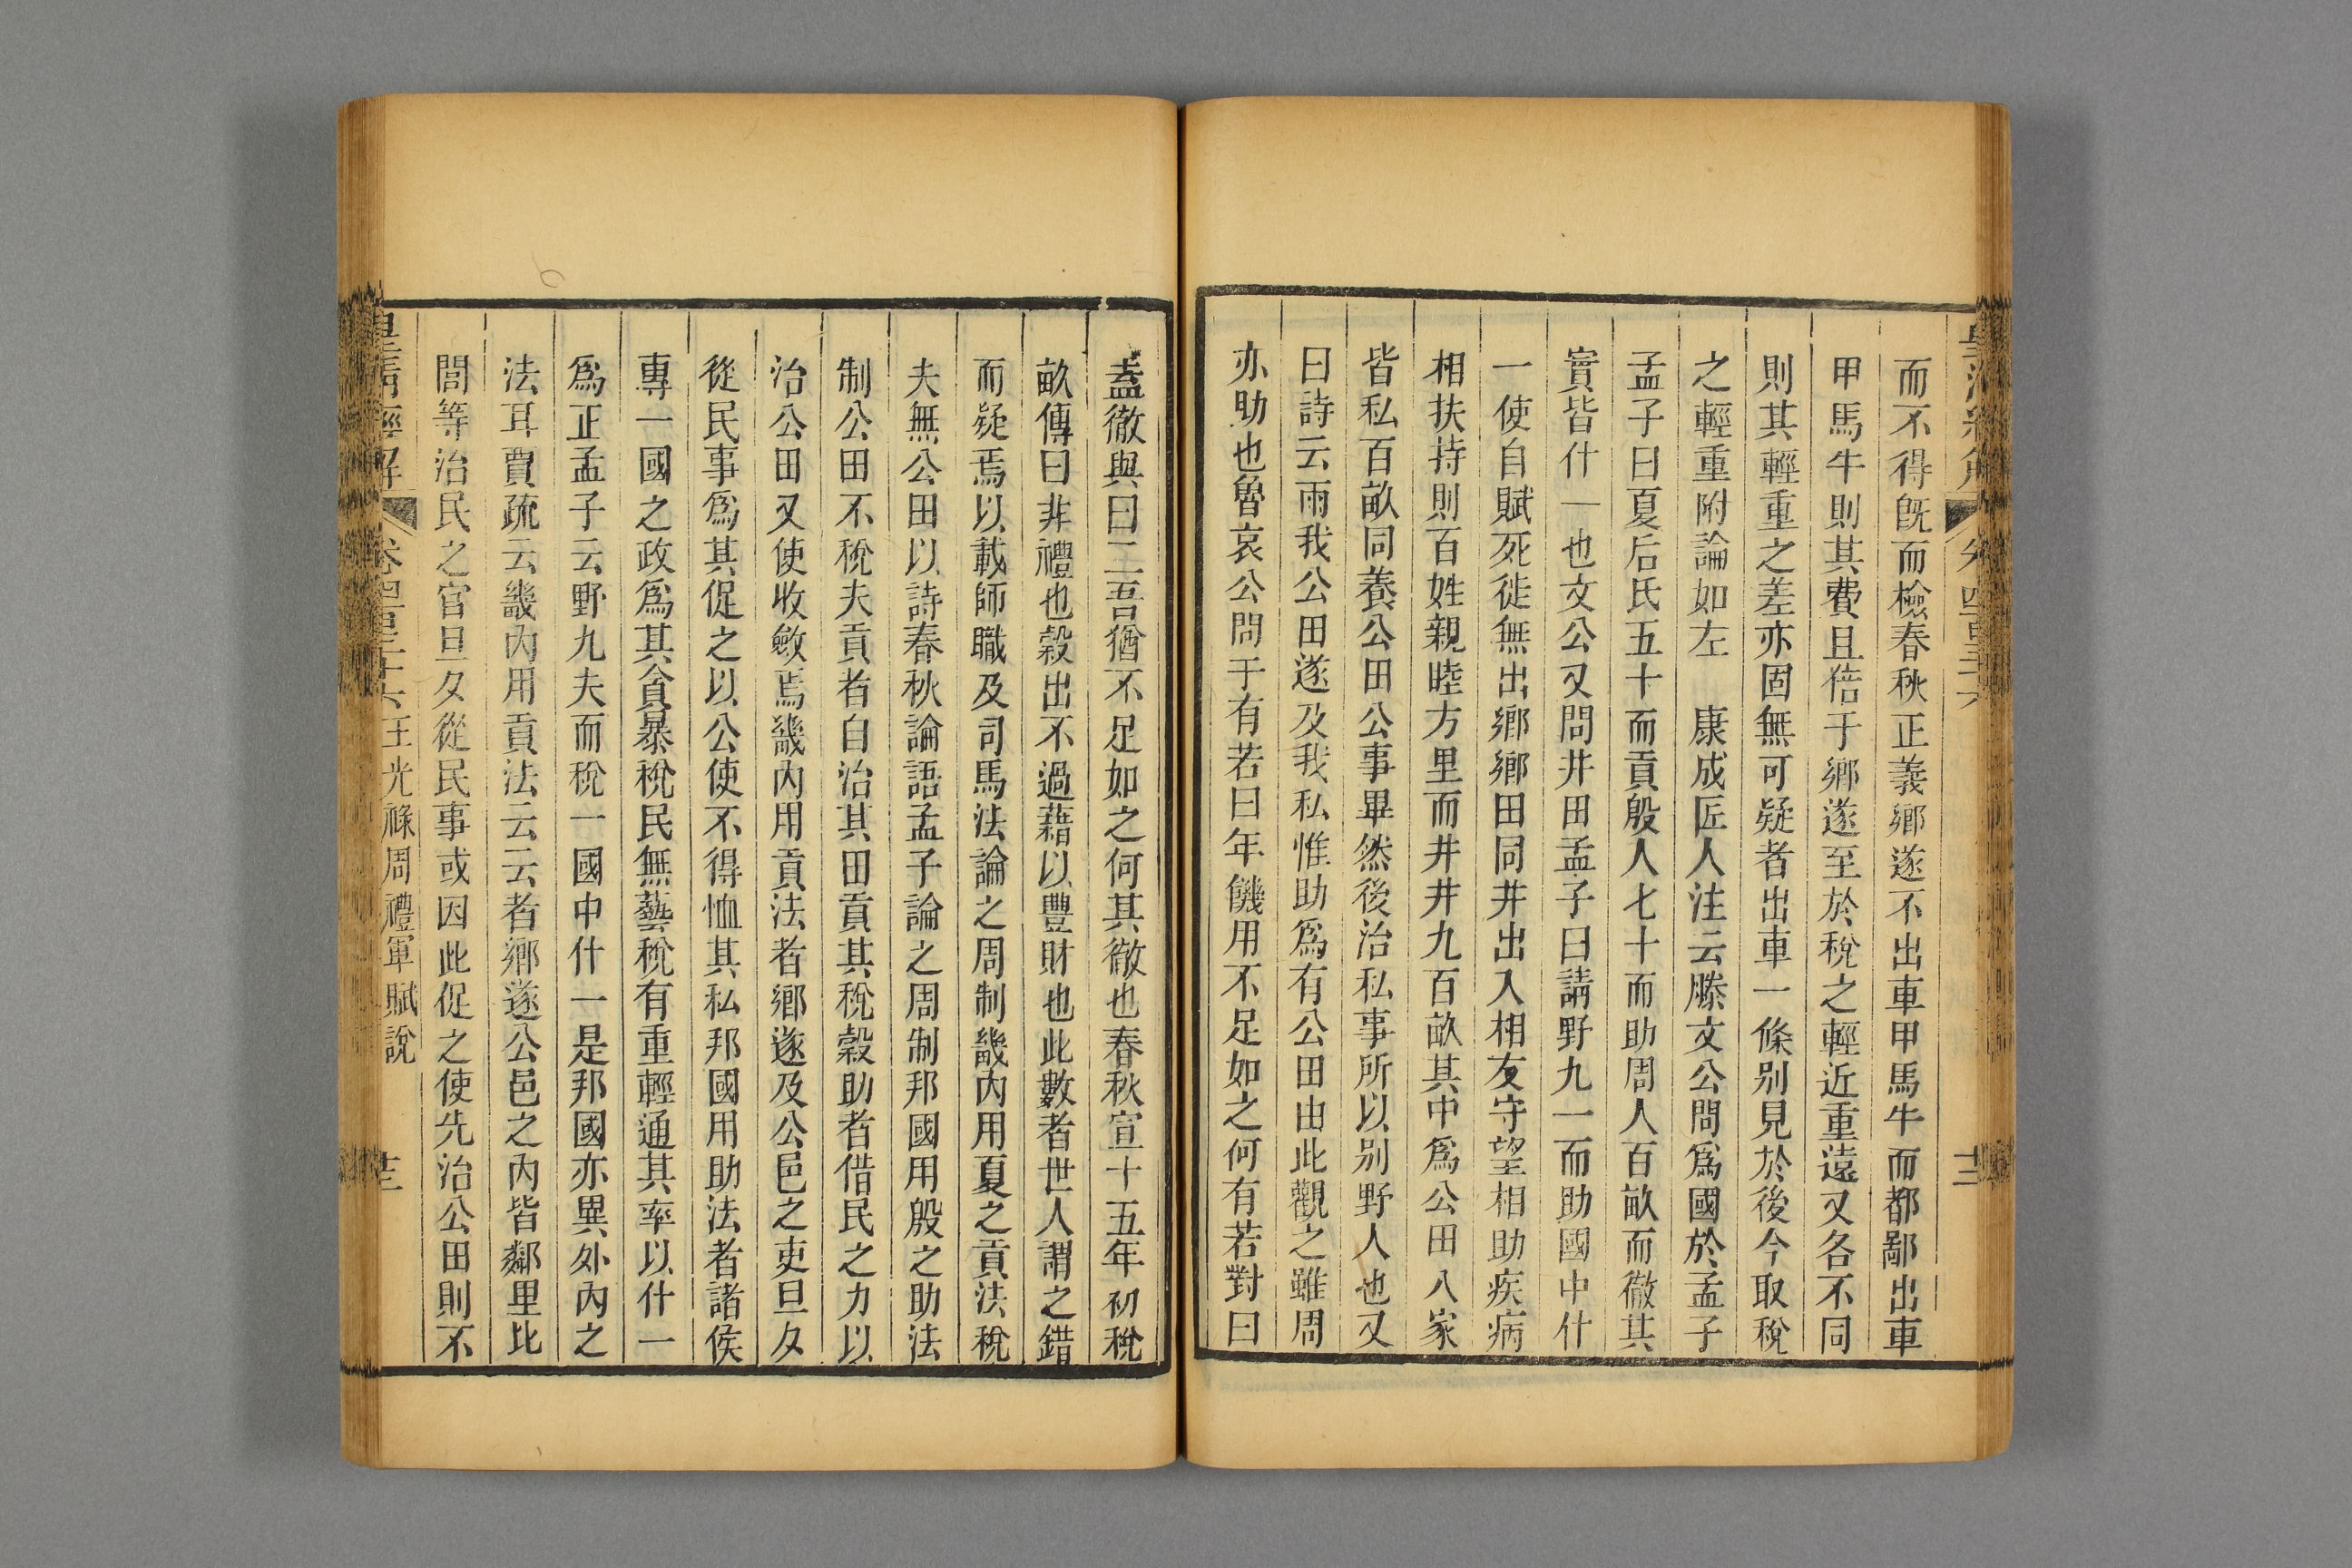 而不得旣而檢春秋正義鄉遂不出車甲馬牛而都鄙出車
甲馬牛則其費且倍于鄉遂至於稅之輕近重遠又各不同
則其輕重之差亦固無可疑者出車一條别見於後今取稅
之輕重附論如左　康成匠人注云滕文公問爲國於孟子
孟子曰夏后氏五十而貢殷人七十而助周人百畝而徹其
實皆什一也文公又問井田孟子曰請野九一而助國中什
一使自賦死徙無出鄉鄉田同井出入相友守望相助疾病
相扶持則百姓親睦方里而井井九百畝其中爲公田八家
皆私百畝同養公田公事畢然後治私事所以别野人也又
曰詩云雨我公田遂及我私惟助爲有公田由此觀之雖周
亦助也魯哀公問于有若曰年饑用不足如之何有若對曰
盍徹與曰二吾猶不足如之何其徹也春秋宣十五年初稅
畝傳曰非禮也穀出不過藉以豐財也此數者世人謂之錯
而疑焉以載師職及司馬法論之周制畿内用夏之貢法稅
夫無公田以詩春秋論語孟子論之周制邦國用殷之助法
制公田不稅夫貢者自治其田貢其稅穀助者借民之力以
治公田又使收斂焉畿内用貢法者鄉遂及公邑之吏旦夕
從民事爲其促之以公使不得恤其私邦國用助法者諸侯
專一國之政爲其貪暴稅民無藝稅有重輕通其率以什一
爲正孟子云野九夫而稅一國中什一是邦國亦異外内之
法耳賈疏云畿内用貢法云云者鄉遂公邑之内皆鄰里比
閭等治民之官旦夕從民事或因此促之使先治公田則不
皇清經解　卷四百三十六王光祿周禮軍賦說　十三